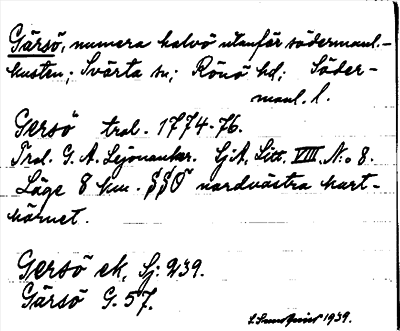 Gärsö, numera halvö utanför södermanl.-
kusten; Svärta sn; Rönö hd; Söder-
manl. l.
Gersö trol. 1774-76.
Trol. G. A. Lejonankar. SjA, Litt. VIII. No 8.
Läge 8 km. SSO nordvästra kart-
hörnet.
Gersö ek, Sj: 239.
Gärsö G. 57.
1939.